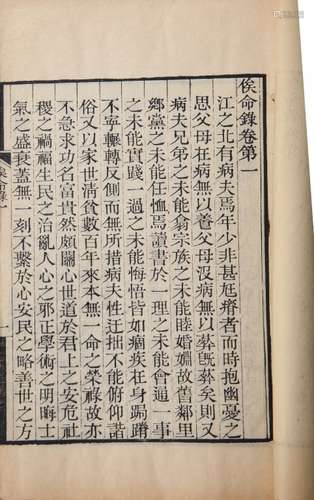 俟命錄卷第一
江之北有病夫焉年少非甚尫瘠者而時抱幽憂之
思父母在病無以養父母沒病無以葬旣葬矣則又
病夫兄弟之未能翕宗族之未能睦婚姻故舊鄰里
鄉黨之未能任恤焉讀書於一理之未能會通一事
之未能實踐一過之未能悔悟皆如痼疾在身跼蹐
不寧輾轉反側而無所措病夫性迂拙不能俯仰諧
俗又以家世清貧數百年來本無一命之榮祿故亦
不急求功名富貴然頗關心世道於君上之安危社
稷之禍福生民之治亂人心之邪正學術之明晦士
氣之盛衰蓋無一刻不繫於心安民之略善世之方
俟命錄一